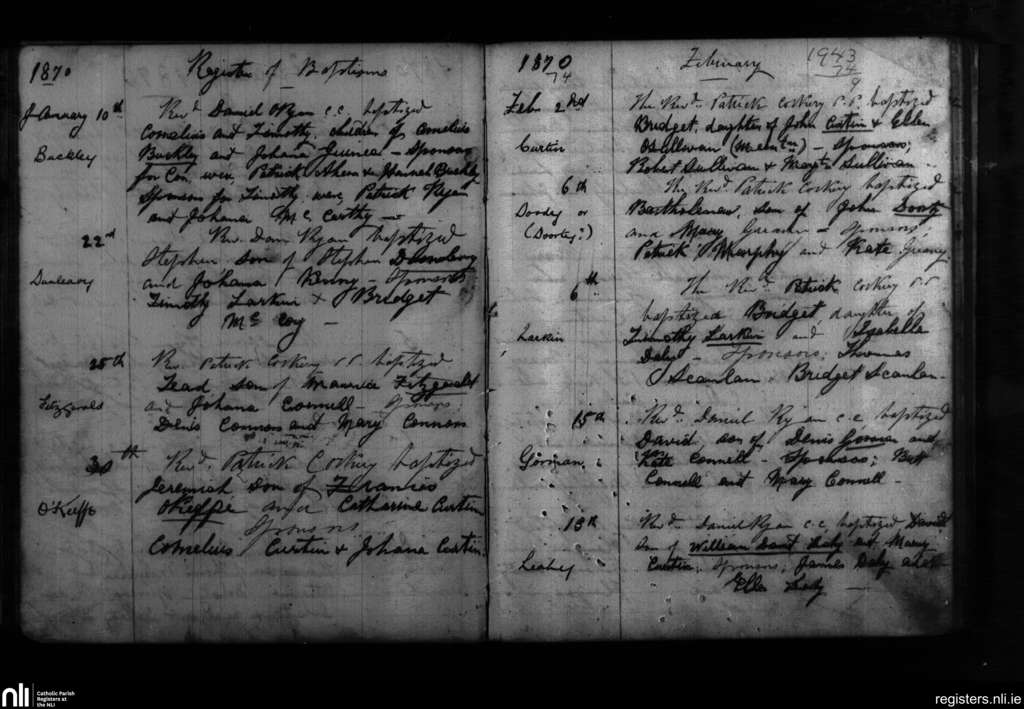 1870 Register of Baptisms
January 10th Revd Daniel Ryan C.C. baptized
Cornelius and Timothy, children of Cornelius
Buckley Buckley and Johana Guinea - Sponsors
for Con. were, Patrick Ahern & Hannah Buckley
Sponsors for Timothy were Patrick Ryan
and Johana Mc Carthy -
22nd Rev. Dan Ryan baptized
Stephen son of Stephen
Dunleavy and Johana - Sponsors
Timothy Larkin & Bridget
Mc Coy -
25th Rev Patrick Cockery P.P. baptized
son of Maurice Fitzgerald
Fitzgerald and Johana Connell - Sponsors
Denis Connors and Mary Connors
30th Revd. Patrick Cockery baptized
Jeremiah son of Francis
O'Keeffe O'Keeffe and Catharine Curtin
Sponsors
Cornelius Curtin & Johana Curtin.
1870 February 1943
74 74
9
Feb. 2nd The Revd. Patrick Cockery P.P. baptized
Bridget, daughter of John Curtin & Ellen
Curtin OSullivan - Sponsors;
Robert Sullivan & Sullivan -
6th The Revd. Patrick Cockery baptized
Doodey or Bartholomew, son of John
(Doorley?) and Mary - Sponsors,
Patrick Murphy and Kate
6th The Revd. Patrick Cockery P.P.
baptized Bridget, daughter of
Larkin Timothy Larkin and Isabella
Daly - Sponsors; Thomas
Scanlan. Bridget Scanlan-
15th Revd. Daniel Ryan C.C. baptized
David, son of Denis Gorman and
Gorman Kate Connell - Sponsors;
Connell and Mary Connell -
18th Revd. Daniel Ryan C.C. baptized David
son of William and Mary
Leahey Curtin; Sponsors; James Daly and
Ellen -
nli Catholic Parish
Registers at
the NLI
registers.nli.ie